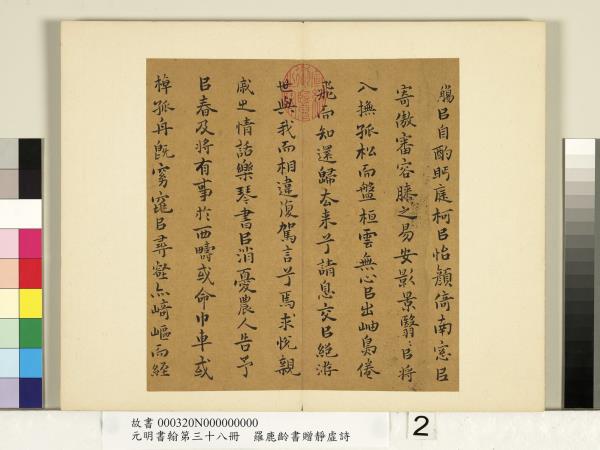 觴㠯自酌眄庭柯㠯怡顏倚南窓㠯
寄傲審容膝之易安影景翳翳㠯將
入撫孤松而盤桓雲無心㠯出岫鳥倦
飛而知還歸去来兮請息交㠯絕游
世與我而相違復駕言兮焉求悅親
戚之情話樂琴書㠯消憂農人告予
㠯春及將有事於西疇或命巾車或
棹孤舟旣窈窕㠯尋壑亦崎嶇而經
故書 000320N000000000
元明書翰第三十八冊 羅鹿齡書贈靜虛詩
2